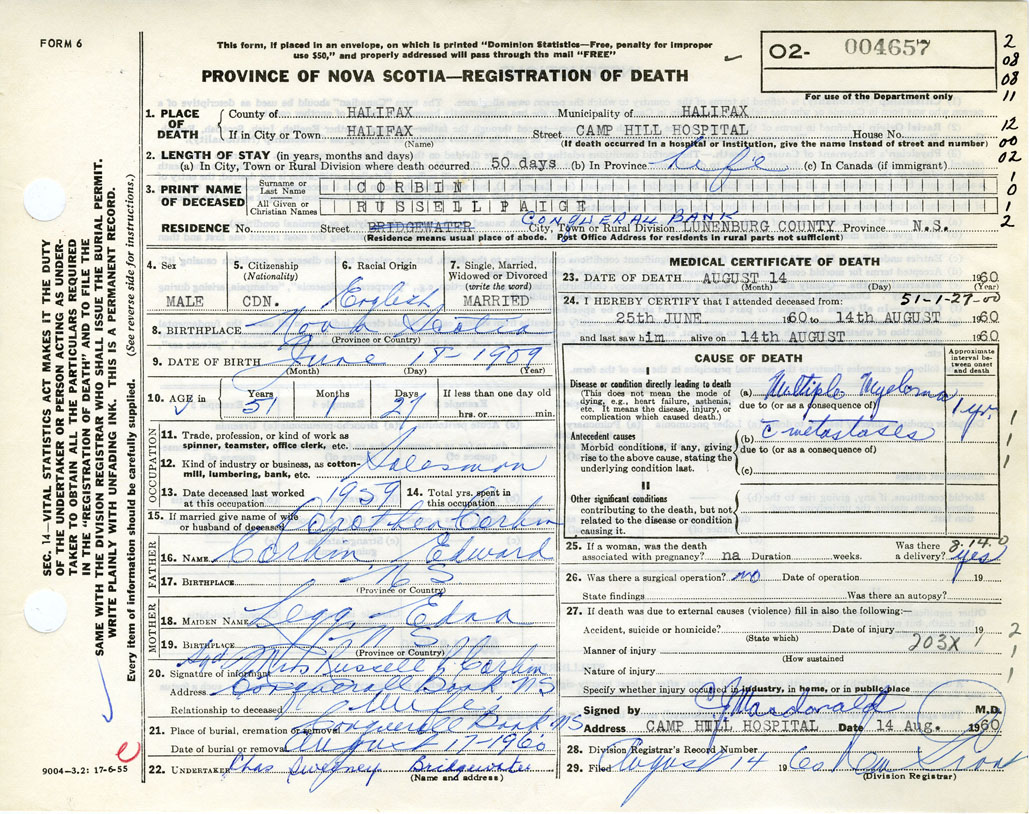 FORM 6
This form, if placed in an envelope, on which is printed "Dominion Statistics—Free, penalty for improper
use $50," and properly addressed will pass through the mail "FREE"
PROVINCE OF NOVA SCOTIA—REGISTRATION OF DEATH
O2- 004657
For use of the Department only
2
08
08
11
12
00
02
1
0
1
2
SEC. 14—VITAL STATISTICS ACT MAKES IT THE DUTY
OF THE UNDERTAKER OR PERSON ACTING AS UNDER-
TAKER TO OBTAIN ALL THE PARTICULARS REQUIRED
IN THE "REGISTRATION OF DEATH" AND TO FILE THE
SAME WITH THE DIVISION REGISTRAR WHO SHALL ISSUE THE BURIAL PERMIT.
WRITE PLAINLY WITH UNFADING INK. THIS IS A PERMANENT RECORD.
Every item of information should be carefully supplied. (See reverse side for instructions.)
1. PLACE OF DEATH
County of HALIFAX Municipality of HALIFAX
If in City or Town HALIFAX Street CAMP HILL HOSPITAL House No.
(Name) (If death occurred in a hospital or institution, give the name instead of street and number)
2. LENGTH OF STAY (in years, months and days)
(a) In City, Town or Rural Division where death occurred 50 days (b) In Province life (c) In Canada (if immigrant)
3. PRINT NAME OF DECEASED
Surname or Last Name CORBIN
All Given or Christian Names RUSSELL PAIGE
CONQUERALL BANK
RESIDENCE No. Street BRIDGEWATER City, Town or Rural Division LUNENBURG COUNTY Province N.S.
(Residence means usual place of abode. Post Office Address for residents in rural parts not sufficient)
4. Sex MALE
5. Citizenship (Nationality) CDN.
6. Racial Origin English
7. Single, Married, Widowed or Divorced (write the word) MARRIED
8. BIRTHPLACE Nova Scotia
(Province or Country)
9. DATE OF BIRTH June 18 - 1909
(Month) (Day) (Year)
10. AGE in Years 51 Months 1 Days 27 If less than one day old hrs. or min.
OCCUPATION
11. Trade, profession, or kind of work as spinner, teamster, office clerk, etc.
12. Kind of industry or business, as cotton-mill, lumbering, bank, etc. Salesman
13. Date deceased last worked at this occupation 1959 14. Total yrs. spent in this occupation
15. If married give name of wife or husband of deceased Corbin
FATHER
16. NAME Corbin Edward
17. BIRTHPLACE N S
(Province or Country)
MOTHER
18. MAIDEN NAME Legg Edna
19. BIRTHPLACE N S
(Province or Country)
20. Signature of informant Sgd Mrs Russell P Corbin
Address Conquerall Bank NS
Relationship to deceased Wife
21. Place of burial, cremation or removal Conquerall Bank NS
Date of burial or removal August 17-1960
22. UNDERTAKER Chas Sweeney Bridgewater
(Name and address)
9004—3.2: 17-6-55
MEDICAL CERTIFICATE OF DEATH
23. DATE OF DEATH AUGUST 14 1960
(Month) (Day) (Year)
24. I HEREBY CERTIFY that I attended deceased from: 51-1-27-00
25th JUNE 1960 to 14th AUGUST 1960
and last saw him alive on 14th AUGUST 1960
CAUSE OF DEATH
Approximate interval between onset and death
I
Disease or condition directly leading to death
(This does not mean the mode of dying, e.g., heart failure, asthenia, etc. It means the disease, injury, or complication which caused death.)
(a) Multiple Myeloma 1 yr.
due to (or as a consequence of)
Antecedent causes
Morbid conditions, if any, giving rise to the above cause, stating the underlying condition last.
(b) c̄ metastases
due to (or as a consequence of)
(c)
II
Other significant conditions
contributing to the death, but not related to the disease or condition causing it.
1
1
1
25. If a woman, was the death associated with pregnancy? na Duration weeks. Was there a delivery? yes
8-14-0
26. Was there a surgical operation? no Date of operation 19
State findings Was there an autopsy?
27. If death was due to external causes (violence) fill in also the following:—
Accident, suicide or homicide? Date of injury 19
(State which)
Manner of injury 203X
(How sustained)
Nature of injury
2
1
1
Specify whether injury occurred in industry, in home, or in public place
Signed by Macdonald M.D.
Address CAMP HILL HOSPITAL Date 14 Aug. 1960
28. Division Registrar's Record Number
29. Filed August 14 1960
(Division Registrar)